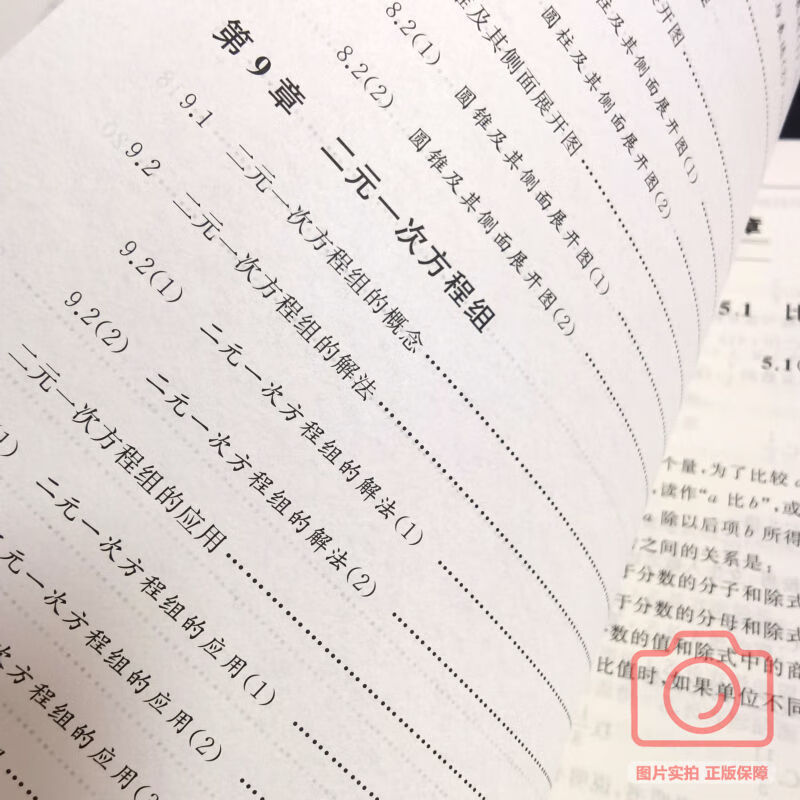 圆柱及其侧面展开图(1)
圆柱及其侧面展开图(2)
锥及其侧面展开图
8.2(1) 圆锥及其侧面展开图(1)
8.2(2) 圆锥及其侧面展开图(2)
第9章 二元一次方程组
9.1 二元一次方程组的概念
9.2 二元一次方程组的解法
9.2(1) 二元一次方程组的解法(1)
9.2(2) 二元一次方程组的解法(2)
二元一次方程组的应用
二元一次方程组的应用(1)
二元一次方程组的应用(2)
次方程组的应用
章
5.1 比
5.1
个量,为了比较
,读作“a 比 b”,或
a 除以后项 b 所得
之间的关系是:
于分数的分子和除式
于分数的分母和除式
数的值和除式中的商
比值时,如果单位不同
图片实拍 正版保障